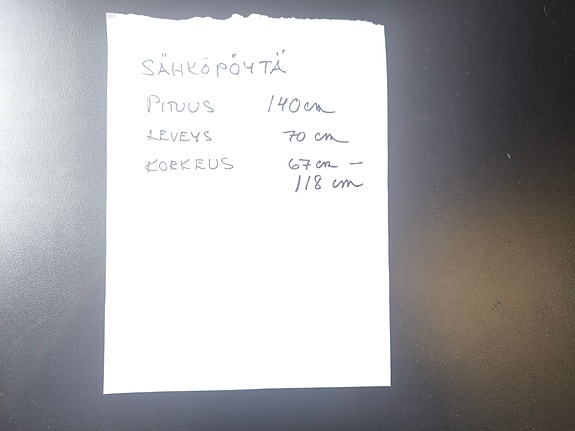 SÄHKÖPÖYTÄ
PITUUS 140 cm
LEVEYS 70 cm
KORKEUS 67 cm –
118 cm